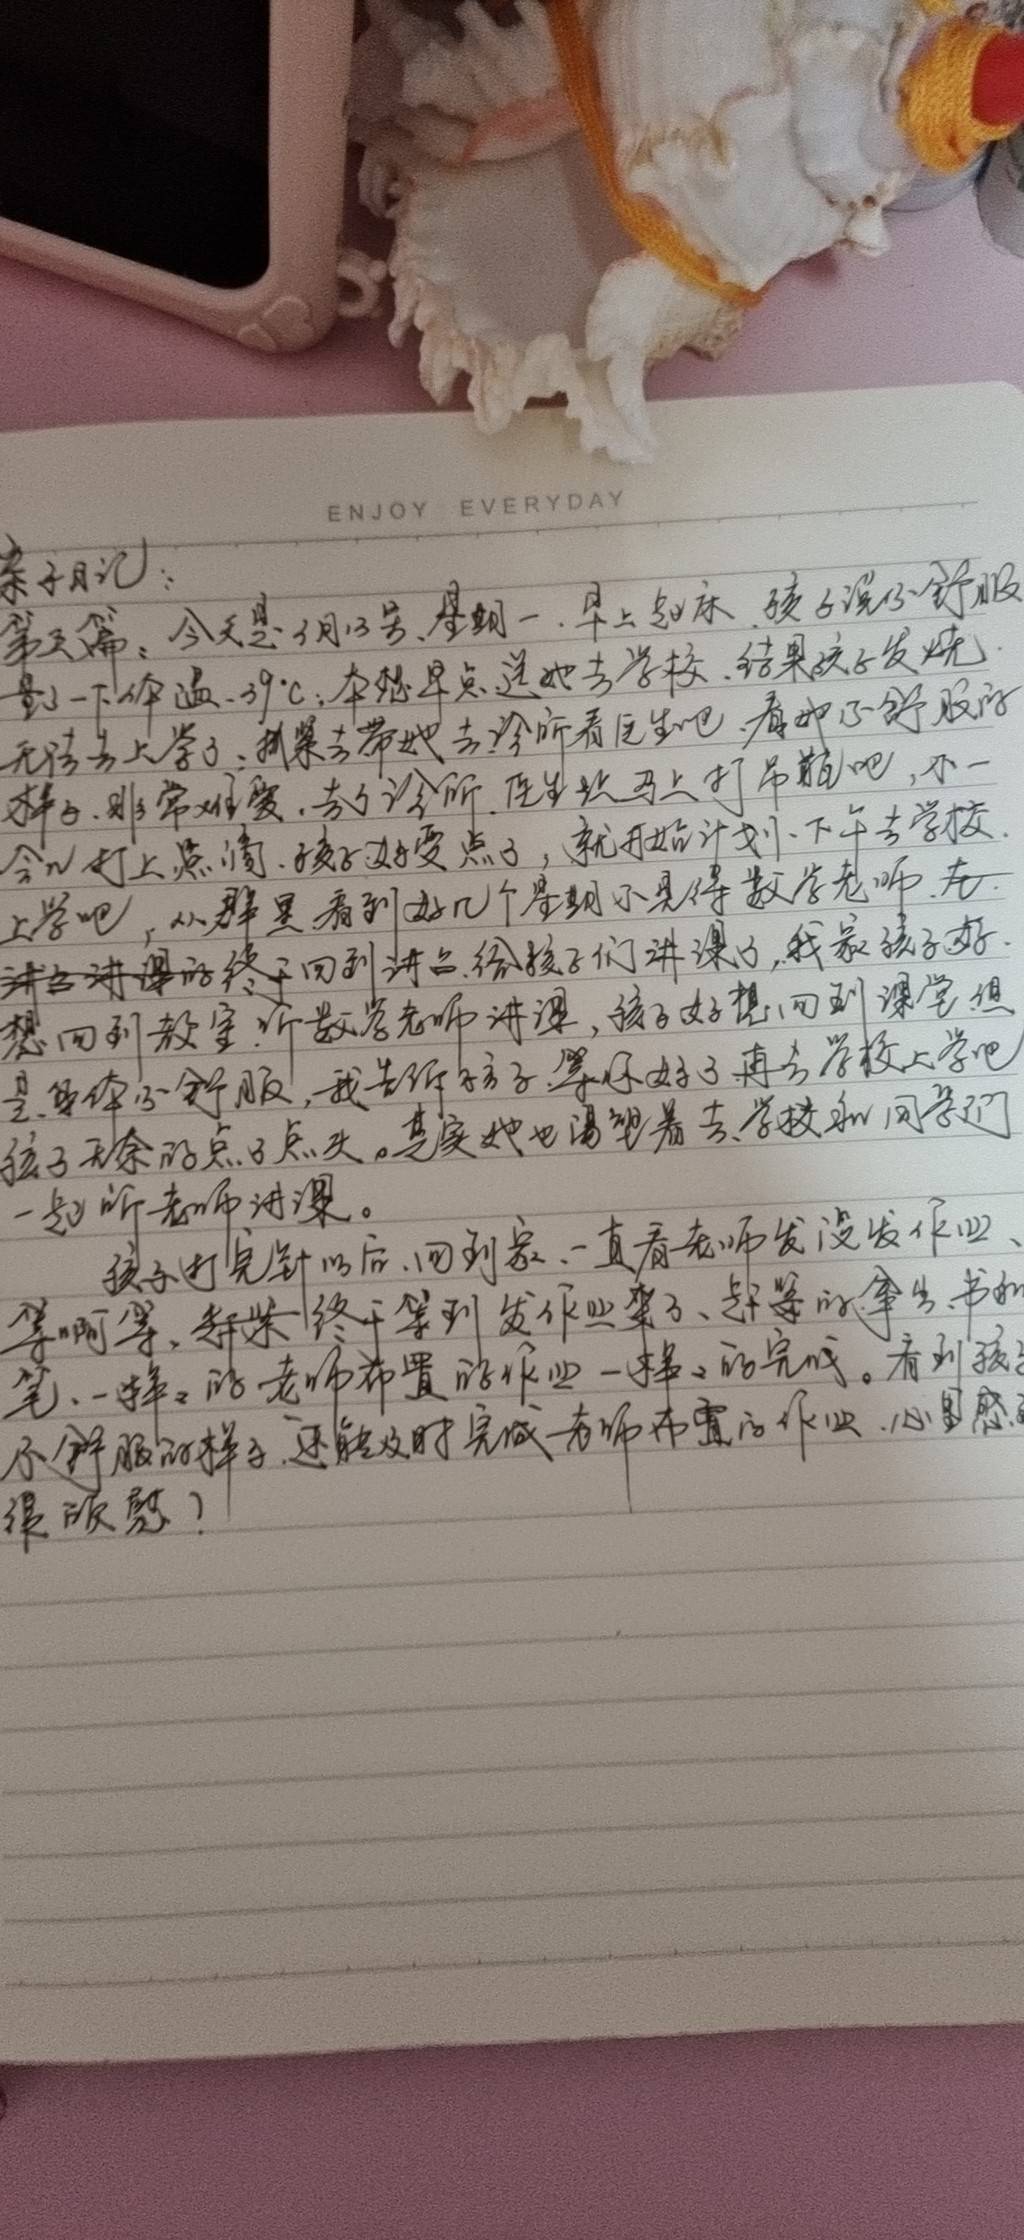 ENJOY EVERYDAY
亲子日记:
第六篇:今天是3月13号、星期一.早上起床.孩子说不舒服
量了一下体温.39℃:本想早点送她去学校.结果孩子发烧.
无法去上学了、抓紧去带她去诊所看医生吧、看她不舒服的
样子.非常难受.去了诊所.医生说马上打吊瓶吧,不一
会儿打上点滴.孩子好受点了,就开始计划、下午去学校.
上学吧,从群里看到好几个星期不见得数学老师.在
讲台讲课的终于回到讲台.给孩子们讲课了,我家孩子好.
想回到教室.听数学老师讲课,孩子好想回到课堂但
是.身体不舒服,我告诉孩子.等你好了再去学校上学吧
孩子无奈的点了点头。其实她也渴望着去、学校和同学们
一起听老师讲课。
孩子打完针以后、回到家、一直看老师发没发作业、
等啊等、赶紧终于等到发作业来了、赶紧的拿出.书和
笔、一样々的老师布置的作业一样々的完成。看到孩子
不舒服的样子.还能及时完成老师布置的作业.心里感到
很欣慰!